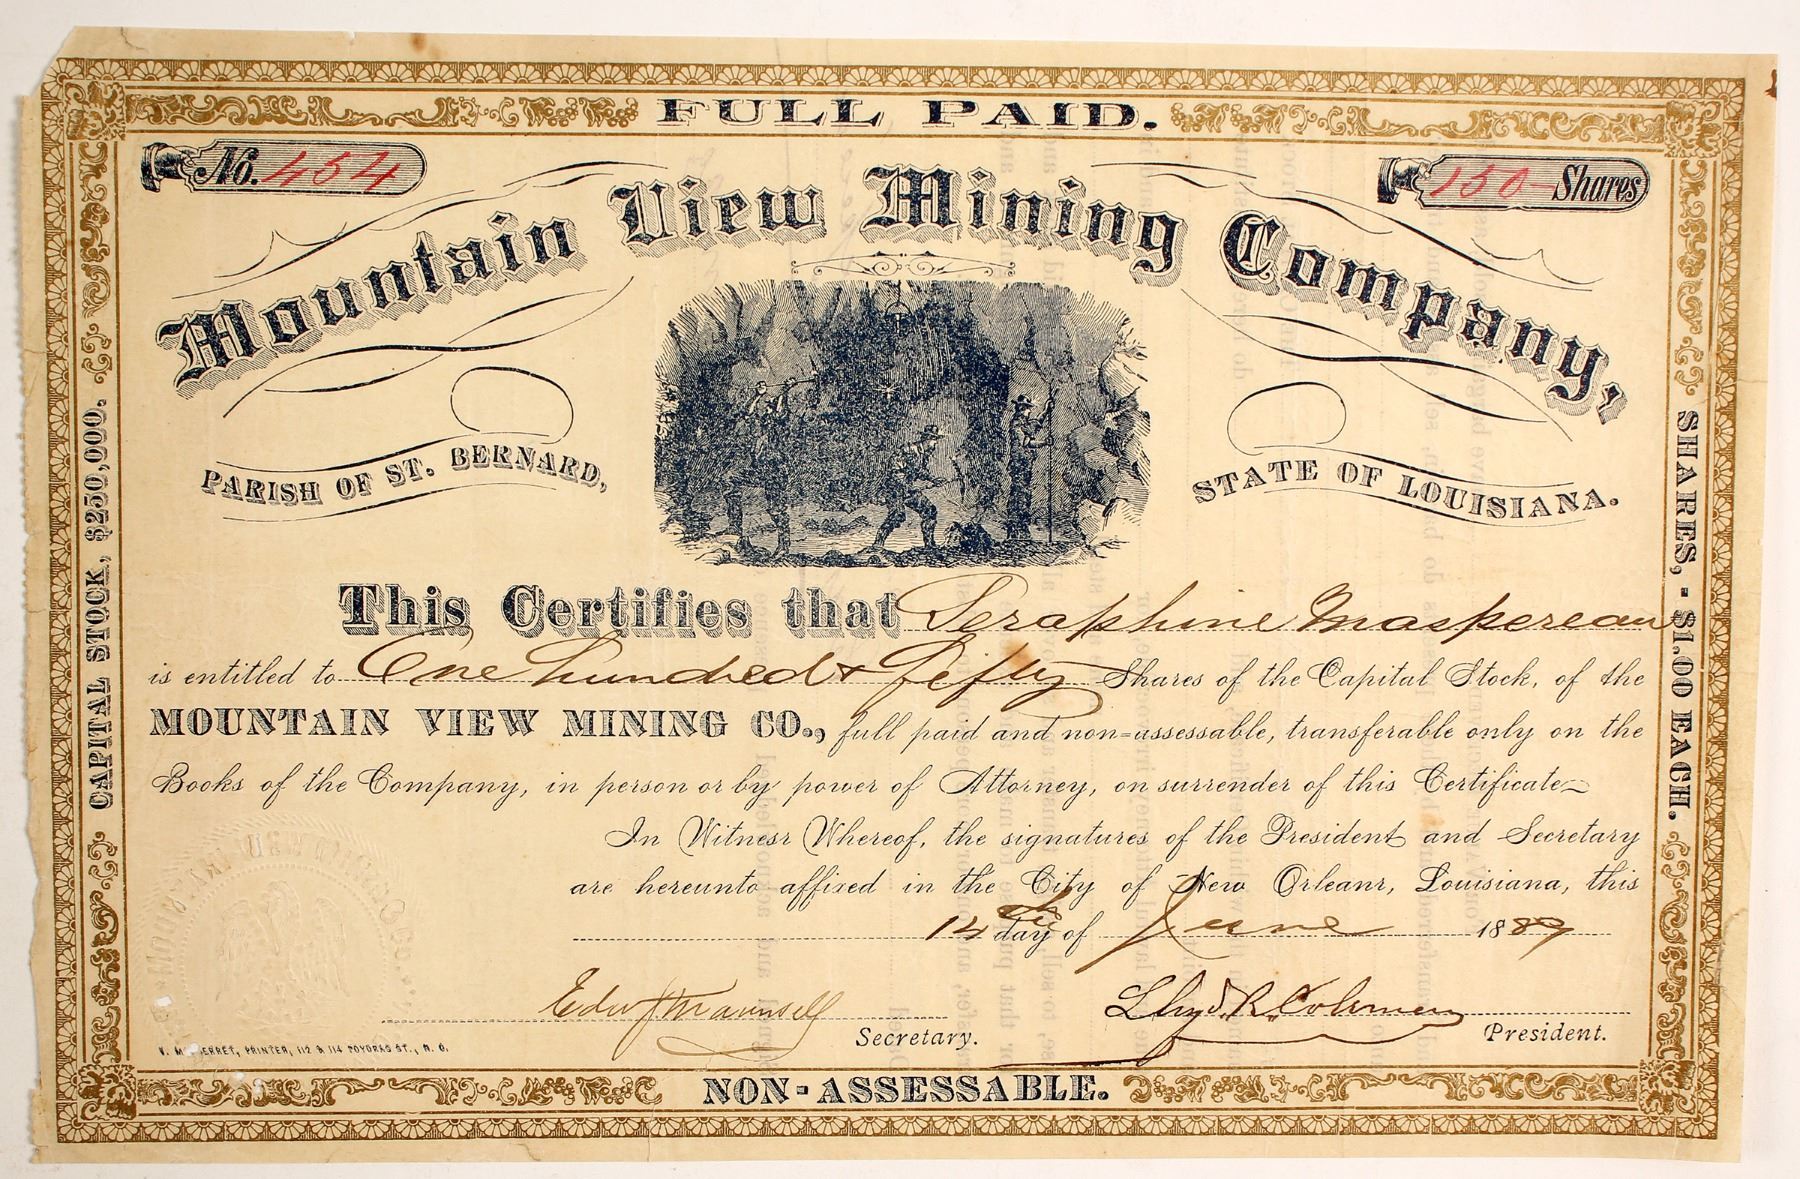 FULL PAID.
No. 454
150 Shares
Mountain View Mining Company,
PARISH OF ST. BERNARD,
STATE OF LOUISIANA.
CAPITAL STOCK, $250,000.
SHARES, - $1,00 EACH.
This Certifies that Seraphine Maspereau
is entitled to One hundred & fifty Shares of the Capital Stock, of the
MOUNTAIN VIEW MINING CO., full paid and non-assessable, transferable only on the
Books of the Company, in person or by power of Attorney, on surrender of this Certificate
In Witness Whereof, the signatures of the President and Secretary
are hereunto affixed in the City of New Orleans, Louisiana, this
14th day of June 1889
Edw J Maunsell
Secretary.
Lloyd R. Coleman
President.
PRINTER, 112 & 114 POYDRAS ST., N. O.
NON-ASSESSABLE.